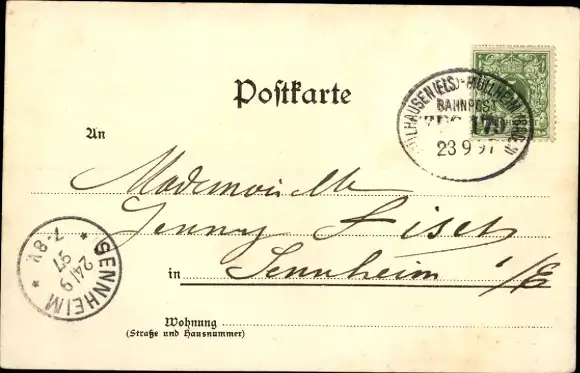 Postkarte
MÜLHAUSEN (ELS)-MÜLLHEIM (BADEN)
BAHNPOST
ZUG 179
23 9 97
An
Mademoiselle
Jenny
in Sennheim i/E
SENNHEIM
24/9
97
7-8V
Wohnung
(Straße und Hausnummer)